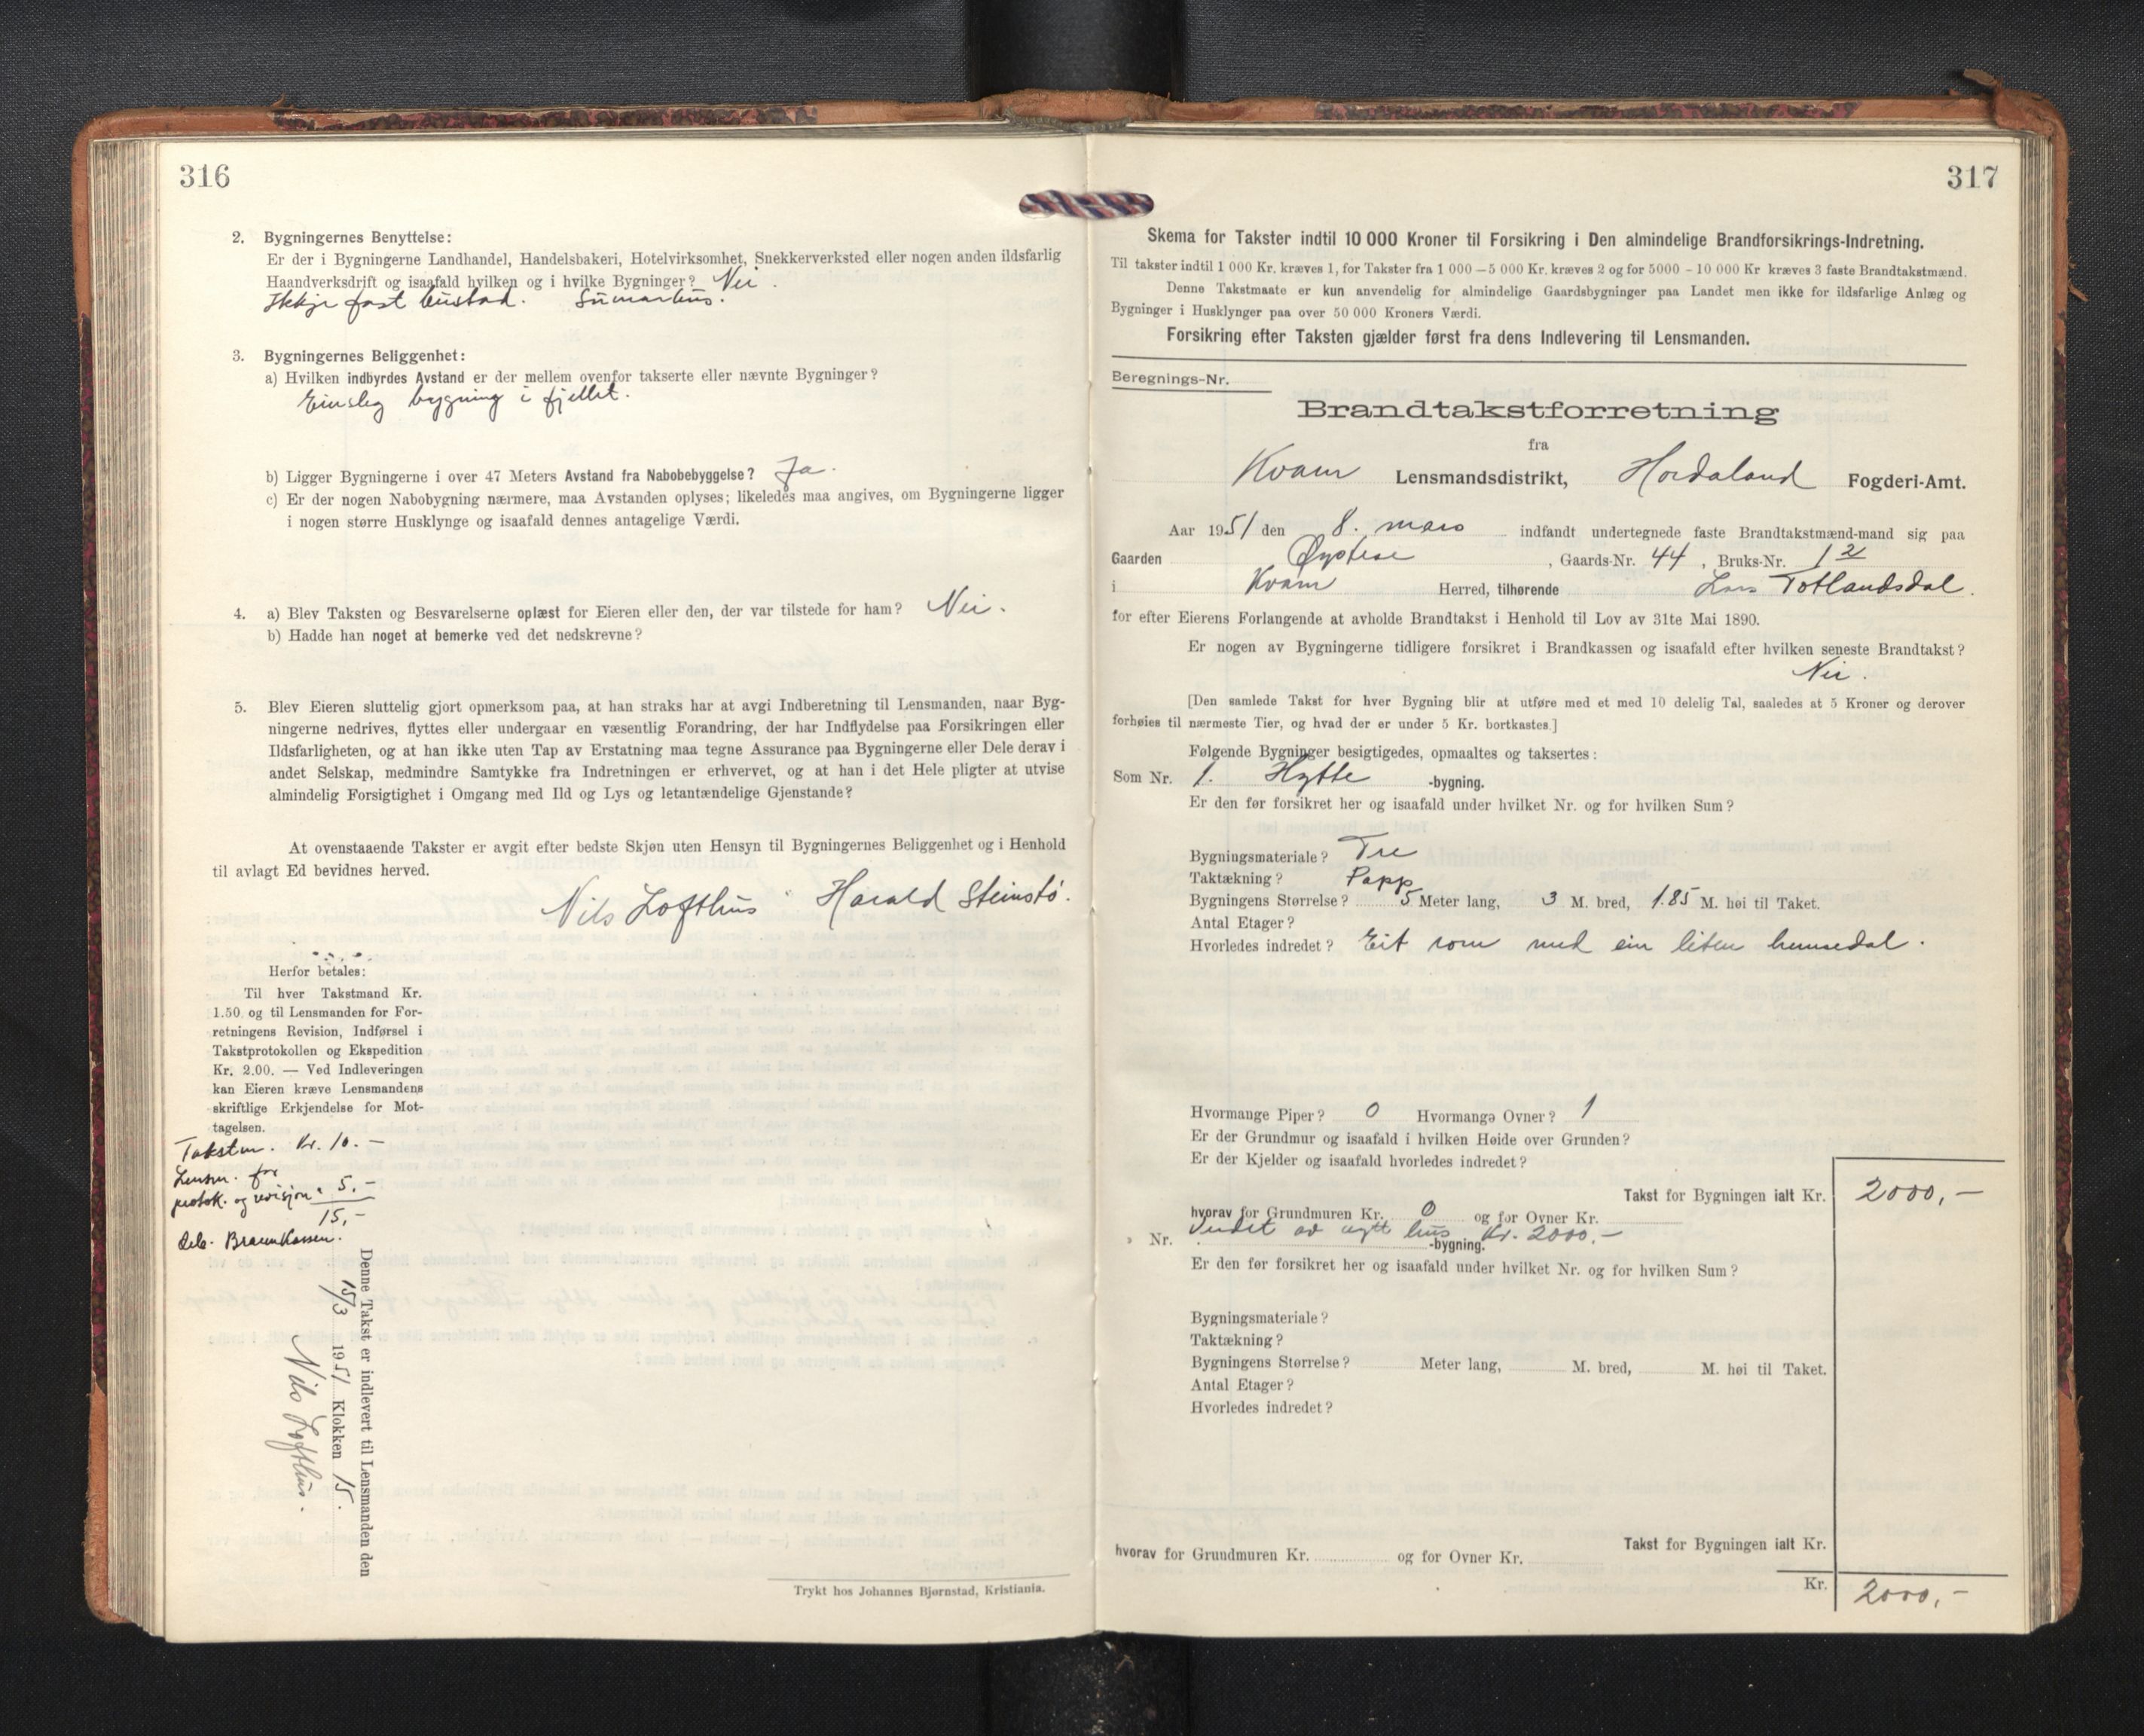 316
2. Bygningernes Benyttelse:
Er der i Bygningerne Landhandel, Handelsbakeri, Hotelvirksomhet, Snekkerverksted eller nogen anden ildsfarlig
Haandverksdrift og isaafald hvilken og i hvilke Bygninger? Nei.
Ikkje fast bustad. Sumarhus.
3. Bygningernes Beliggenhet:
a) Hvilken indbyrdes Avstand er der mellem ovenfor takserte eller nævnte Bygninger?
Einsleg bygning i fjellet.
b) Ligger Bygningerne i over 47 Meters Avstand fra Nabobebyggelse? Ja.
c) Er der nogen Nabobygning nærmere, maa Avstanden oplyses; likeledes maa angives, om Bygningerne ligger
i nogen større Husklynge og isaafald dennes antagelige Værdi.
4. a) Blev Taksten og Besvarelserne oplæst for Eieren eller den, der var tilstede for ham? Nei.
b) Hadde han noget at bemerke ved det nedskrevne?
5. Blev Eieren sluttelig gjort opmerksom paa, at han straks har at avgi Indberetning til Lensmanden, naar Byg-
ningerne nedrives, flyttes eller undergaar en væsentlig Forandring, der har Indflydelse paa Forsikringen eller
Ildsfarligheten, og at han ikke uten Tap av Erstatning maa tegne Assurance paa Bygningerne eller Dele derav i
andet Selskap, medmindre Samtykke fra Indretningen er erhvervet, og at han i det Hele pligter at utvise
almindelig Forsigtighet i Omgang med Ild og Lys og letantændelige Gjenstande?
At ovenstaaende Takster er avgit efter bedste Skjøn uten Hensyn til Bygningernes Beliggenhet og i Henhold
til avlagt Ed bevidnes herved.
Nils Lofthus Harald Steinstø.
Herfor betales:
Til hver Takstmand Kr.
1.50 og til Lensmanden for For-
retningens Revision, Indførsel i
Takstprotokollen og Ekspedition
Kr. 2.00. — Ved Indleveringen
kan Eieren kræve Lensmandens
skriftlige Erkjendelse for Mot-
tagelsen.
Takstm. Kr. 10.-
Lensm. for
protok. og revisjon " 5,-
15,-
Brannkassen.
Denne Takst er indlevert til Lensmanden den
15/3 1951 Klokken 15.
Nils Lofthus.
Trykt hos Johannes Bjørnstad, Kristiania.
317
Skema for Takster indtil 10 000 Kroner til Forsikring i Den almindelige Brandforsikrings-Indretning.
Til takster indtil 1 000 Kr. kræves 1, for Takster fra 1 000 — 5 000 Kr. kræves 2 og for 5000 - 10 000 Kr kræves 3 faste Brandtakstmænd.
Denne Takstmaate er kun anvendelig for almindelige Gaardsbygninger paa Landet men ikke for ildsfarlige Anlæg og
Bygninger i Husklynger paa over 50 000 Kroners Værdi.
Forsikring efter Taksten gjælder først fra dens Indlevering til Lensmanden.
Beregnings-Nr.
Brandtakstforretning
fra
Kvam Lensmandsdistrikt, Hordaland Fogderi-Amt.
Aar 1951 den 8. mars indfandt undertegnede faste Brandtakstmænd-mand sig paa
Gaarden Øystese, Gaards-Nr. 44, Bruks-Nr. 12
i Kvam Herred, tilhørende Lars Totlandsdal.
for efter Eierens Forlangende at avholde Brandtakst i Henhold til Lov av 31te Mai 1890.
Er nogen av Bygningerne tidligere forsikret i Brandkassen og isaafald efter hvilken seneste Brandtakst?
Nei.
[Den samlede Takst for hver Bygning blir at utføre med et med 10 delelig Tal, saaledes at 5 Kroner og derover
forhøies til nærmeste Tier, og hvad der er under 5 Kr. bortkastes.]
Følgende Bygninger besigtigedes, opmaaltes og taksertes:
Som Nr. 1. Hytte -bygning.
Er den før forsikret her og isaafald under hvilket Nr. og for hvilken Sum?
Bygningsmateriale? Tre
Taktækning? Papp
Bygningens Størrelse? 5 Meter lang, 3 M. bred, 1.85 M. høi til Taket.
Antal Etager?
Hvorledes indredet? Eit rom med ein liten hemsedal.
Hvormange Piper? 0 Hvormange Ovner? 1
Er der Grundmur og isaafald i hvilken Høide over Grunden?
Er der Kjelder og isaafald hvorledes indredet?
Takst for Bygningen ialt Kr. 2000,-
hvorav for Grundmuren Kr. 0 og for Ovner Kr.
Verdet av nytt hus Kr. 2000.-
" Nr. -bygning.
Er den før forsikret her og isaafald under hvilket Nr. og for hvilken Sum?
Bygningsmateriale?
Taktækning?
Bygningens Størrelse? Meter lang, M. bred, M. høi til Taket.
Antal Etager?
Hvorledes indredet?
Takst for Bygningen ialt Kr.
hvorav for Grundmuren Kr. og for Ovner Kr.
Kr. 2000,-